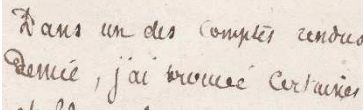 Dans un des comptes rendus
demie, j'ai trouvé certaines